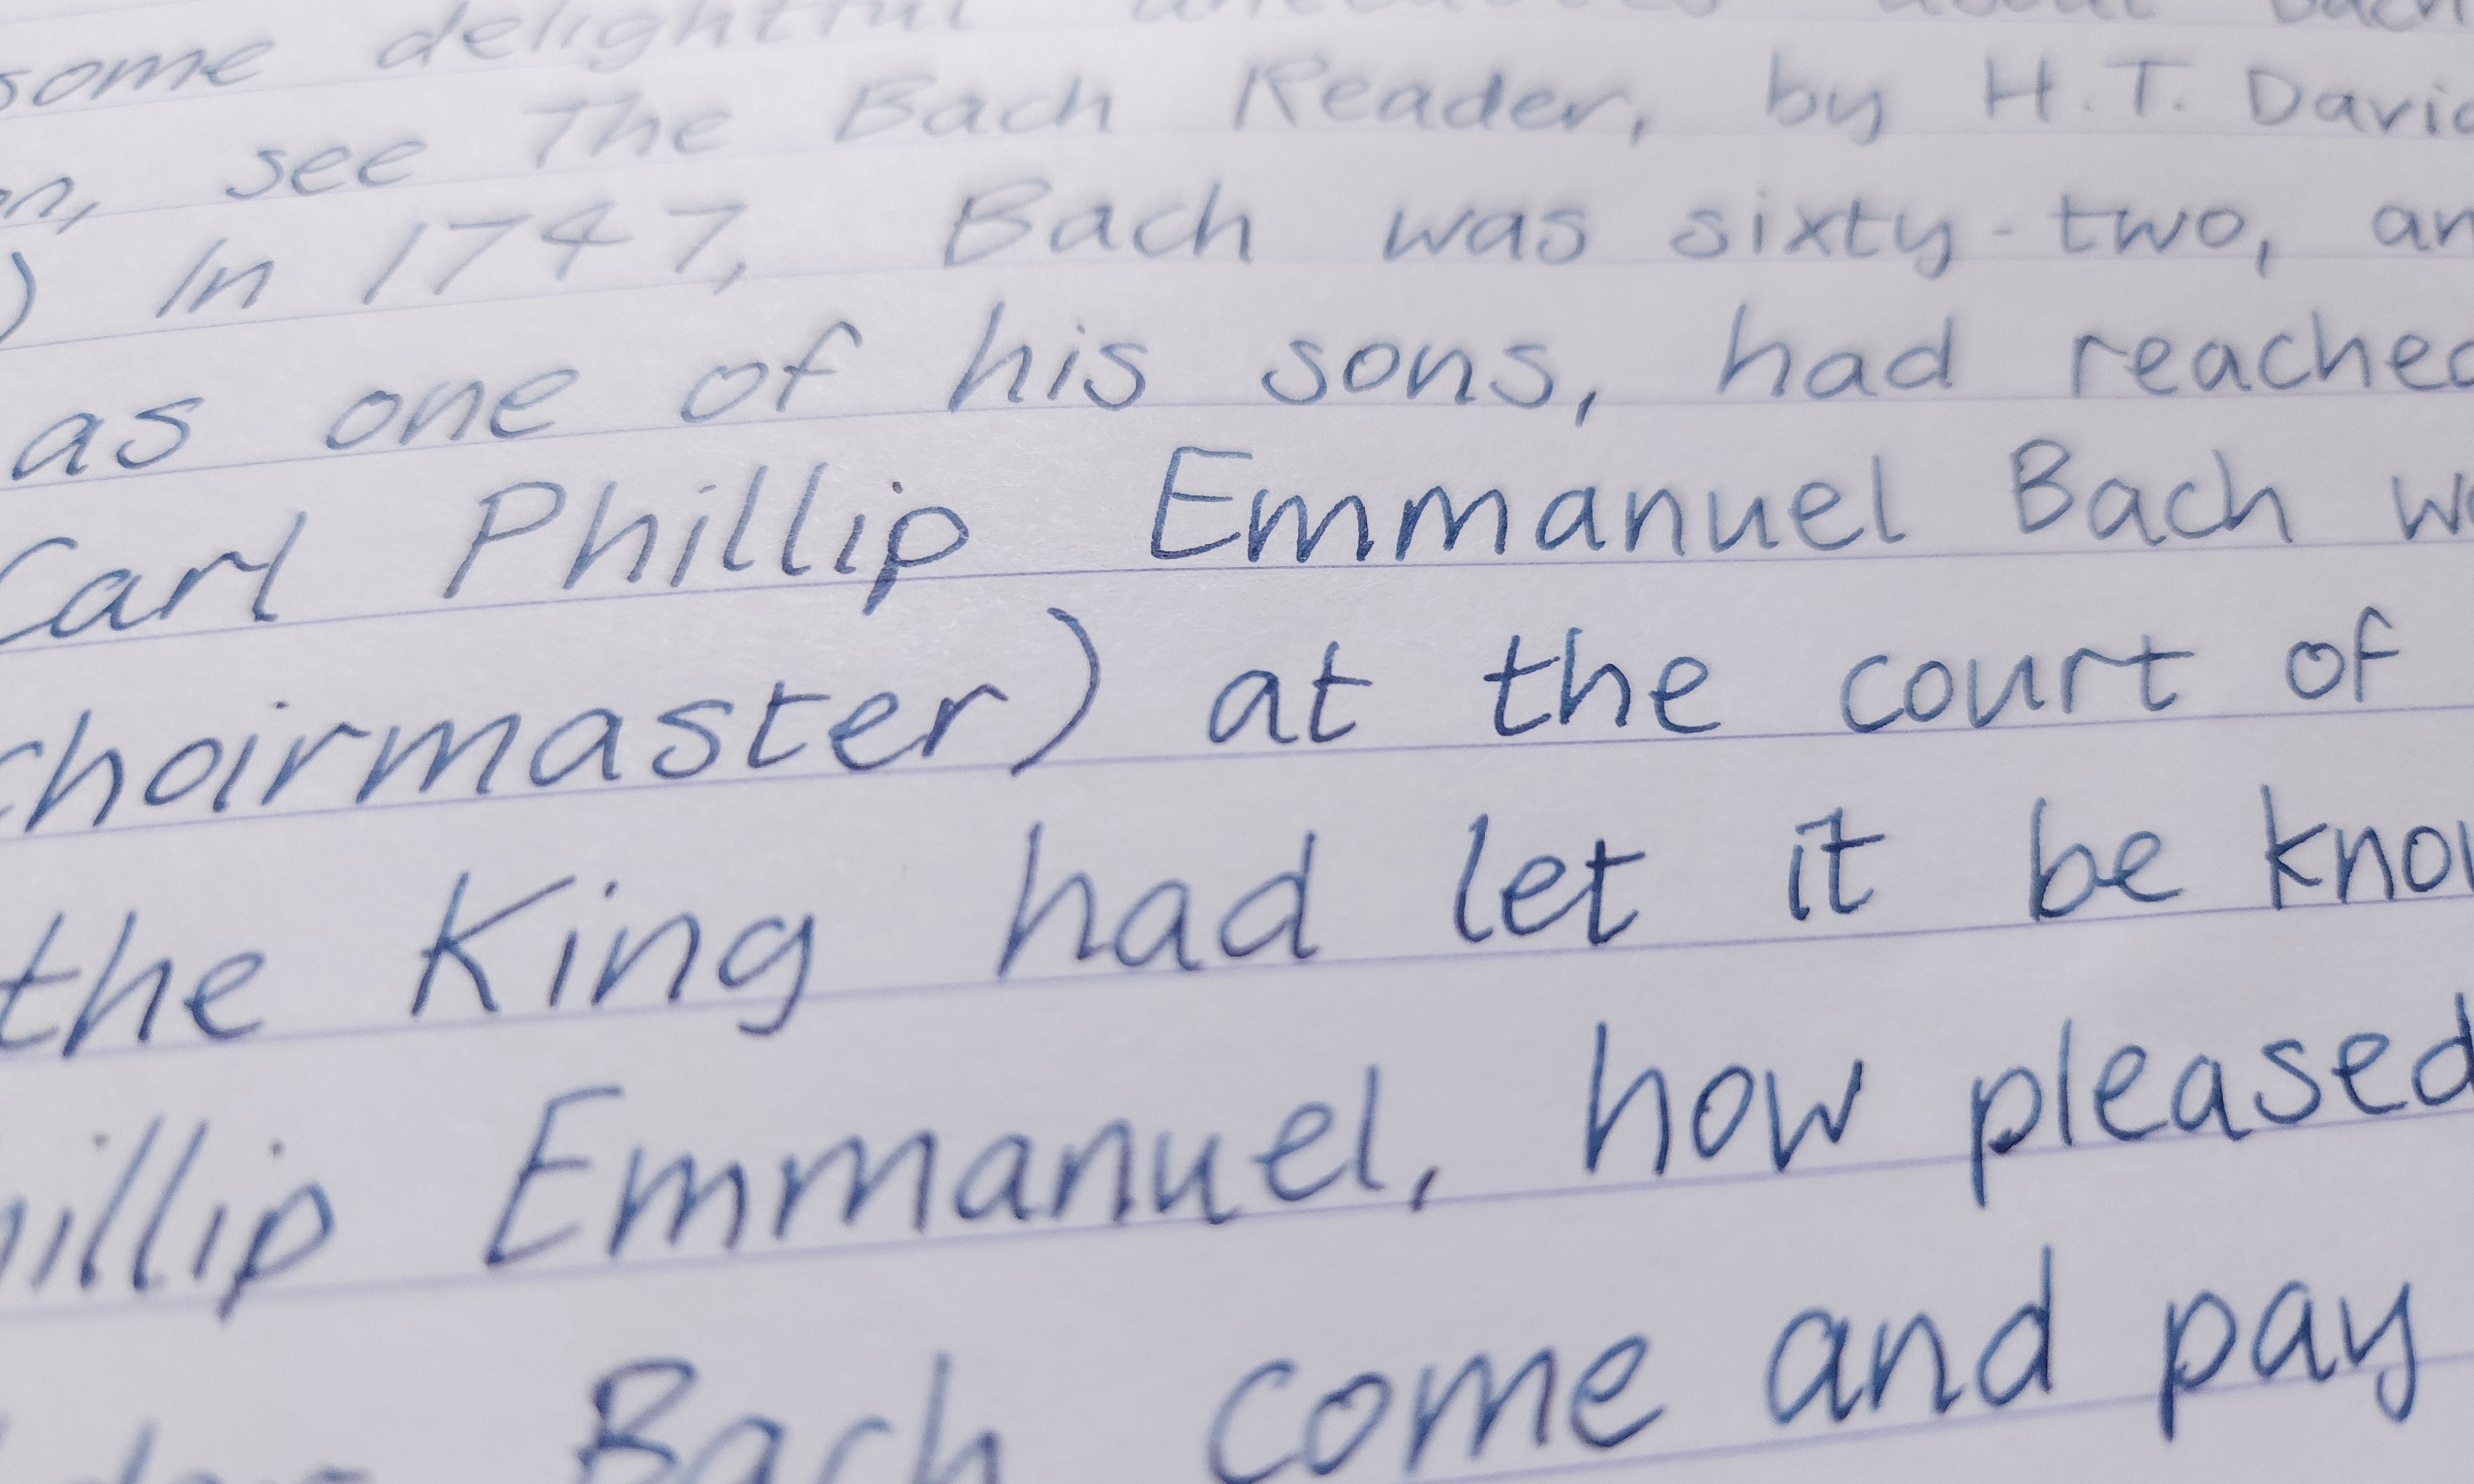 some delightful anecdotes about Bach
see The Bach Reader, by H.T. David
) In 1747, Bach was sixty-two,
as one of his sons, had reached
Carl Phillip Emmanuel Bach
choirmaster) at the court of
the King had let it be
Emmanuel, how pleased
Bach come and pay